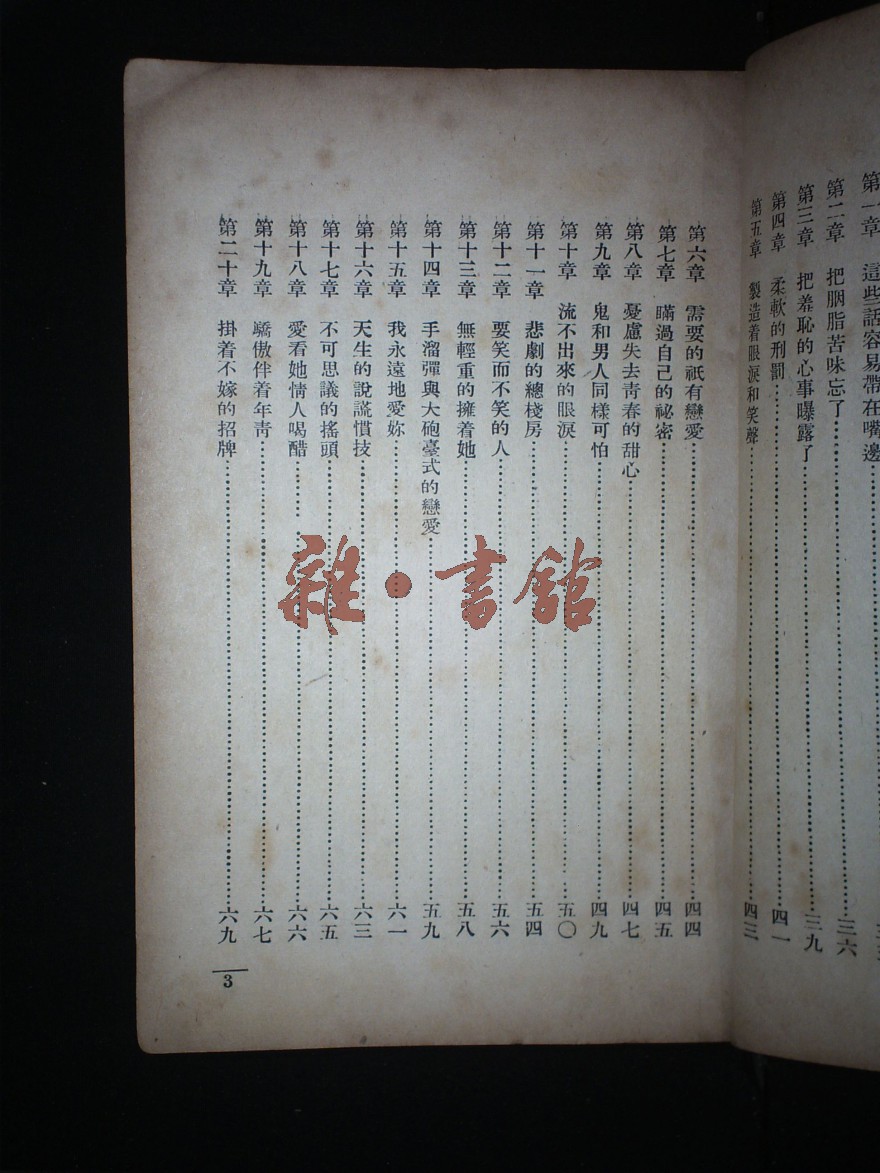 第一章 這些話容易帶在嘴邊
第二章 把胭脂苦味忘了……三六
第三章 把羞恥的心事曝露了……三九
第四章 柔軟的刑罰……四一
第五章 製造着眼淚和笑聲……四三
第六章 需要的祇有戀愛……四四
第七章 瞞過自己的祕密……四五
第八章 憂慮失去靑春的甜心……四七
第九章 鬼和男人同樣可怕……四九
第十章 流不出來的眼淚……五〇
第十一章 悲劇的總棧房……五四
第十二章 要笑而不笑的人……五六
第十三章 無輕重的擁着她……五八
第十四章 手溜彈與大砲臺式的戀愛……五九
第十五章 我永遠地愛妳……六一
第十六章 天生的說謊慣技……六三
第十七章 不可思議的搖頭……六五
第十八章 愛看她情人喝醋……六六
第十九章 驕傲伴着年靑……六七
第二十章 掛着不嫁的招牌……六九
3
雜·書館